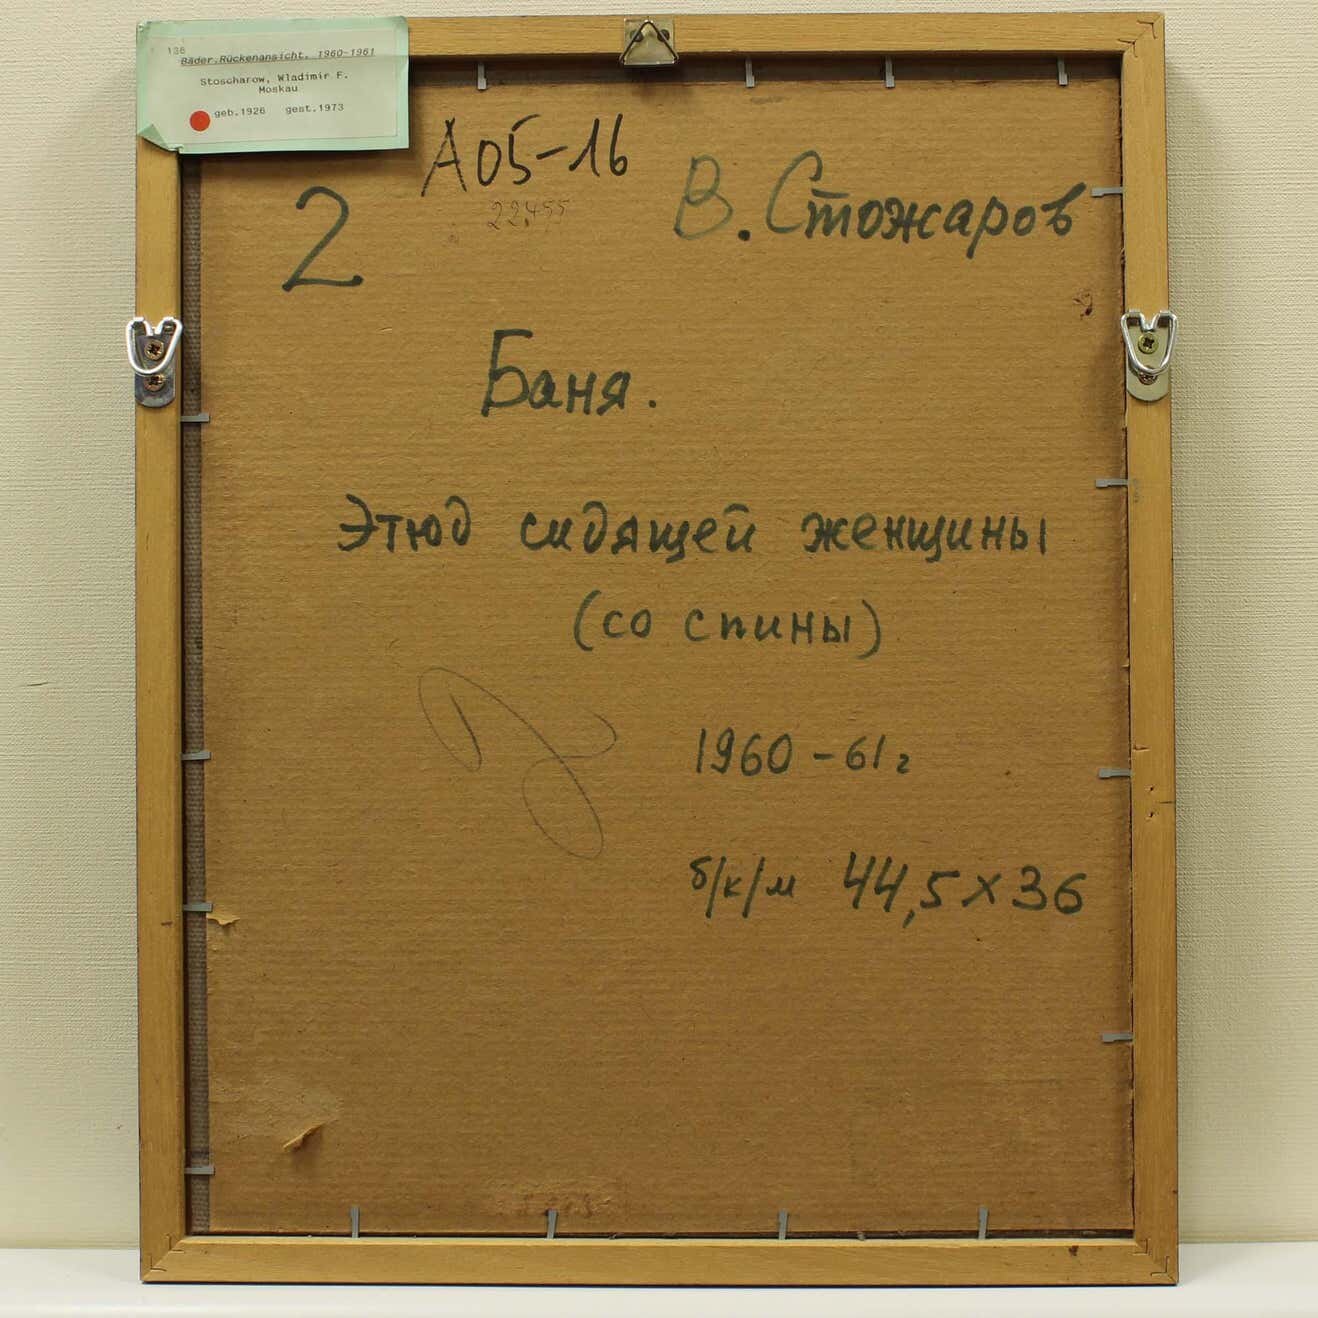 136
Bäder.Rückenansicht, 1960-1961
Stoscharow, Wladimir F.
Moskau
geb.1926 gest.1973
А05-16
2
В. Стожаров
Баня.
Этюд сидящей женщины
(со спины)
1960-61г
б/к/м 44,5х36